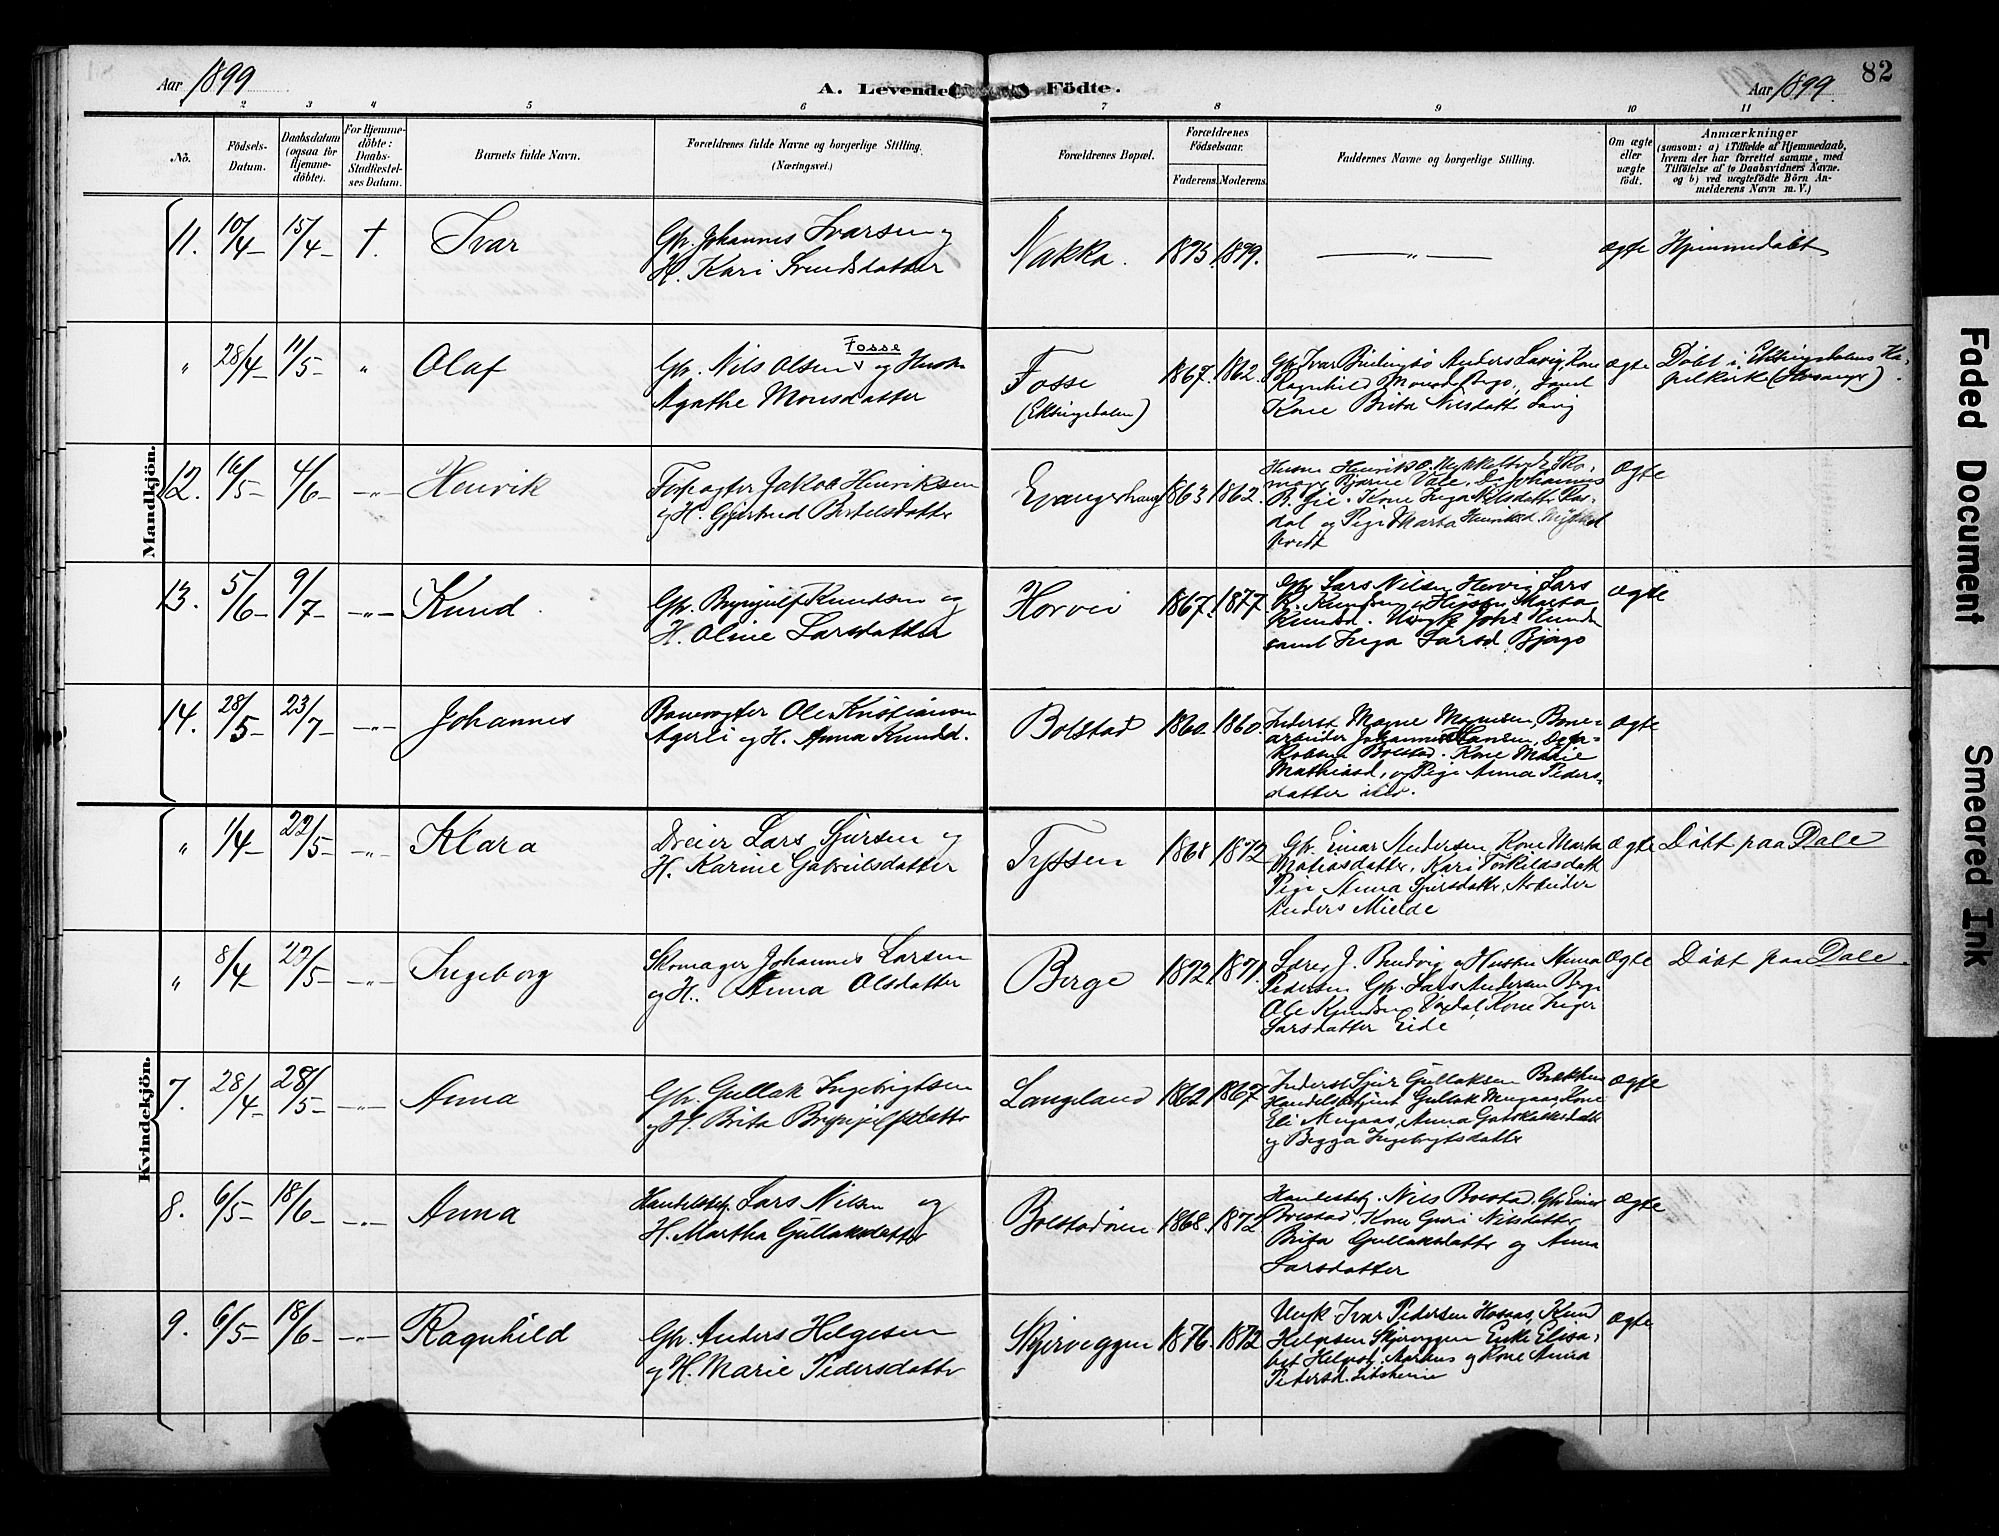 Aar 1899
A. Levende Födte.
Aar 1899.
82
1 2 3 4 5 6 7 8 9 10 11
No.
Födsels-Datum.
Daabsdatum (ogsaa for Hjemme-döbte).
For Hjemme-döbte: Daabs-Stadfæstel-ses Datum.
Barnets fulde Navn.
Forældrenes fulde Navne og borgerlige Stilling.
(Næringsvei.)
Forældrenes Bopæl.
Forældrenes Födselsaar.
Faderens. Moderens.
Faddernes Navne og borgerlige Stilling.
Om ægte eller uægte födt.
Anmærkninger
(saasom: a) i Tilfælde af Hjemmedaab, hvem der har forrettet samme, med Tilföielse af to Daabsvidners Navne. og b) ved uægtefödte Börn An-melderens Navn m. V.)
Mandkjön.
11. 10/4 15/4 †. Ivar
Gbr. Johannes Ivarsen og
H. Kari Svendsdatter
Nakka. 1875. 1899. — „ — ægte Hjemmedøbt
„ 28/4 11/5 „ Olaf
Fosse
Gbr. Nils Olsen v og Hustru
Agathe Monsdatter
Fosse
(Eksingedalen)
1867. 1862.
Ragnhild Monsd. Bergo, samt
Kone Brita Nilsdatt. Lavig
ægte Døbt i Eksingedalens Ka-
pelkirke (Hosanger).
12. 16/5 4/6 -„- Henrik
Forpagter Jakob Henriksen
og H. Gjertrud Bertelsdatter
Evangerhaug 1863 1862.
ægte
13. 5/6 9/7 -„- Knud
Gbr. Brynjulf Knudsen og
H. Oline Larsdatter
Horvei 1867. 1877.
Gbr. Lars Nilsen Horvei, Lars
samt Inga Larsd. Bjørgo
ægte
14. 28/5 23/7 -„- Johannes
Banevogter Ole Kristiansen
Agerli og H. Anna Knudsd.
Bolstad 1860. 1860.
Inderst Magne Magnesen, Bane-
arbeider Johannes Hansen,
Bolstad. Kone Marie
Mathiasd., og Pige Anna Peders-
datter ibid.
ægte
Kvindekjön.
„ 1/4 22/5 -„- Klara
Dreier Lars Sjursen og
H. Karine Gabrielsdatter
Tyssen 1868 1872
Gbr. Einar Andersen, Kone Marta
Matiasdatter, Kari Torkildsdatt
Pige Anna Sjursdatter, Arbeider
Anders Mielde
ægte Døbt paa Dale
„ 8/4 22/5 -„- Ingeborg
Skomager Johannes Larsen
og H. Anna Olsdatter
Berge 1872 1871.
Lærer J. Rudvig og Hustru Anna
Pedersen Gbr. Lars Andersen Berge
Ole Knudsen Vaxdal, Kone Inger
Larsdatter Eide
ægte Døbt paa Dale.
7. 28/4 28/5 -„- Anna
Gbr. Gullak Ingebrigtsen
og H. Brita Brynjulfsdatter
Langeland 1862 1867
Inderst Sjur Gullaksen Brekkhus
Handelsbetjent Gullak Mugaas, Kone
Eli Mugaas, Anna Gotskalksdatt
og Begga Ingebrigtsdatter
ægte
8. 6/5 18/6 -„- Anna
Handelsbetj. Lars Nilsen og
H. Martha Gullaksdatter
Bolstadøren 1868. 1872
Handelsbetj. Nils Bolstad, Gbr. Einar
Bolstad. Kone Guri Nilsdatter
Brita Gullaksdatter og Anna
Larsdatter
ægte
9. 6/5 18/6 -„- Ragnhild
Gbr. Anders Helgesen
og H. Marie Pedersdatter
Skjerveggen 1876. 1872
Ungk. Ivar Pedersen Hosaas, Knud
Helgesen Skjerveggen Enke Elisa-
bet Helgesd. Aarhus og Kone Anna
Pedersd.
ægte
Faded Document
Smeared Ink